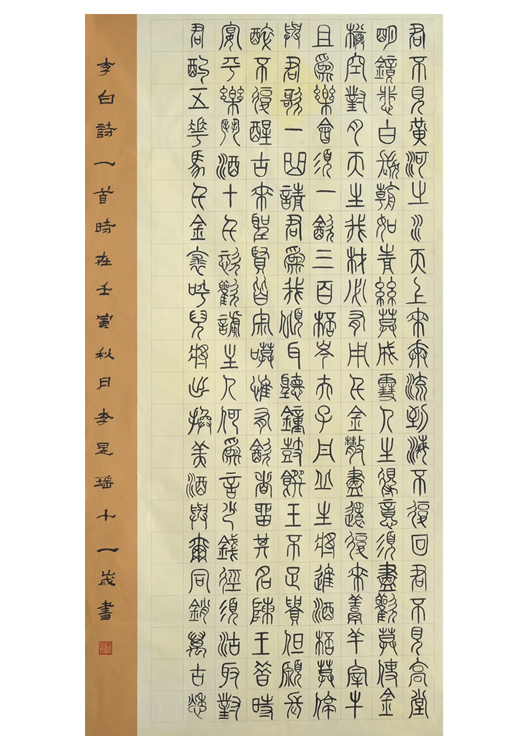 君不見黃河之水天上來奔流到海不復回君不見高堂
明鏡悲白髮朝如青絲莫成雪人生得意須盡歡莫使金
樽空對月天生我材必有用千金散盡還復來羹羊宰牛
且為樂會須一飲三百杯岑夫子丹丘生將進酒杯莫停
與君歌一曲請君為我傾耳聽鐘鼓饌玉不足貴但願長
醉不復醒古來聖賢皆寂寞惟有飲者留其名陳王昔時
宴平樂斗酒十千恣歡謔主人何為言少錢徑須沽取對
君酌五花馬千金裘呼兒將出換美酒與爾同銷萬古愁
李白詩一首時在壬寅秋月李星瑤十一歲書